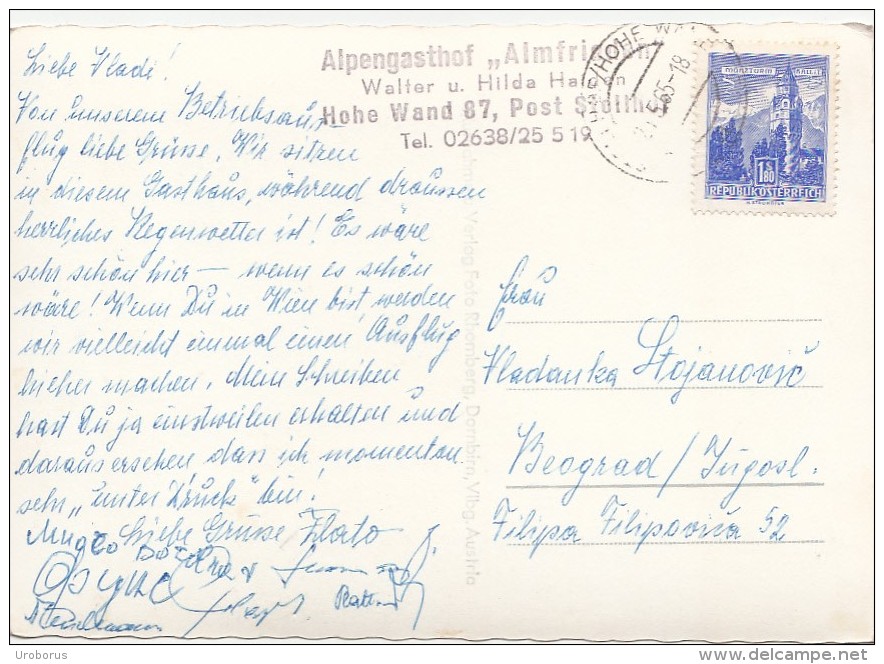 Alpengasthof „Almfrieden"
Walter u. Hilda
Hohe Wand 87, Post
Tel. 02638/25 5 19
HOHE WAND
5.65-18
MÜNZTURM HALL I. T.
1.80
REPUBLIK ÖSTERREICH
Liebe Vladi!
Von unserem Betriebsaus-
flug liebe Grüsse. Wir sitzen
in diesem Gasthaus, während draussen
herrliches Regenwetter ist! Es wäre
sehr schön hier — wenn es schön
wäre! Wenn Du in Wien bist, werden
wir vielleicht einmal einen Ausflug
hieher machen. Mein Schreiben
hast Du ja einstweilen erhalten und
daraus ersehen dass ich momentan
sehr „unter Druck" bin!
Liebe Grüsse Zlato
Verlag Foto Rhomberg, Dornbirn, Vlbg. Austria
Frau
Vladanka Stojanovič
Beograd / Jugosl.
Filipa Filipoviča 52
Uroborus
www.delcampe.net